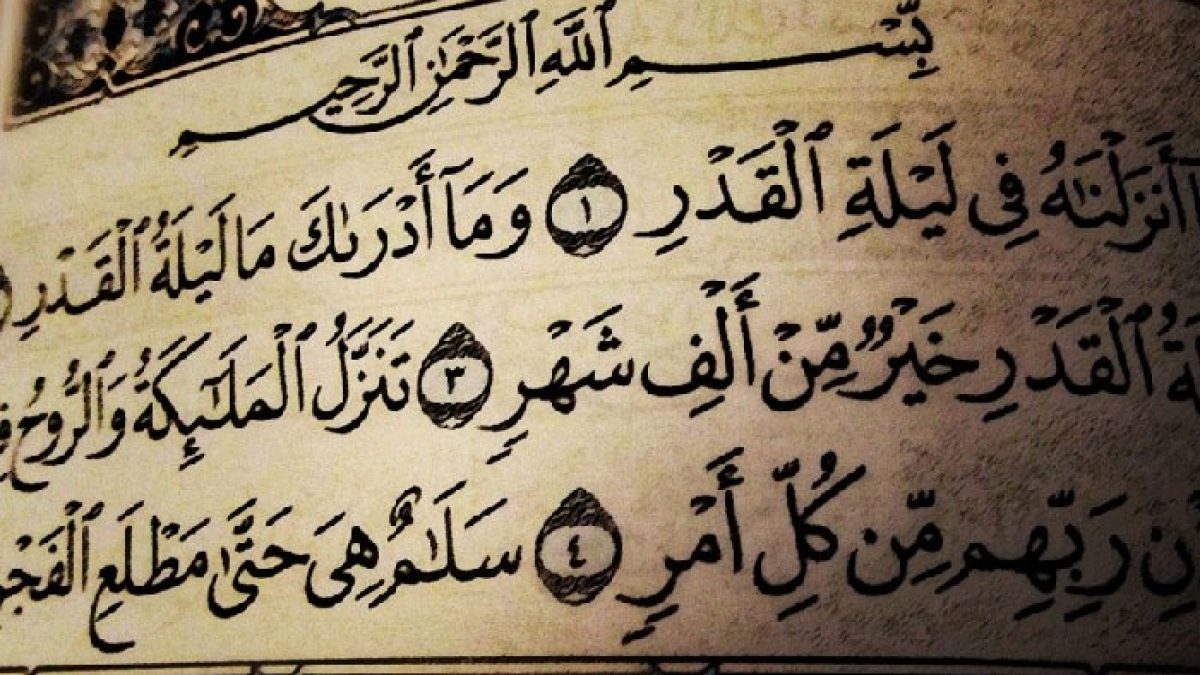 بِسْمِ ٱللَّهِ ٱلرَّحْمَـٰنِ ٱلرَّحِيمِ
أَنزَلْنَـٰهُ فِى لَيْلَةِ ٱلْقَدْرِ ١ وَمَآ أَدْرَىٰكَ مَا لَيْلَةُ ٱلْقَدْرِ
ٱلْقَدْرِ خَيْرٌ مِّنْ أَلْفِ شَهْرٍ ٣ تَنَزَّلُ ٱلْمَلَـٰٓئِكَةُ وَٱلرُّوحُ
رَبِّهِم مِّن كُلِّ أَمْرٍ ٤ سَلَـٰمٌ هِىَ حَتَّىٰ مَطْلَعِ ٱلْفَجْ